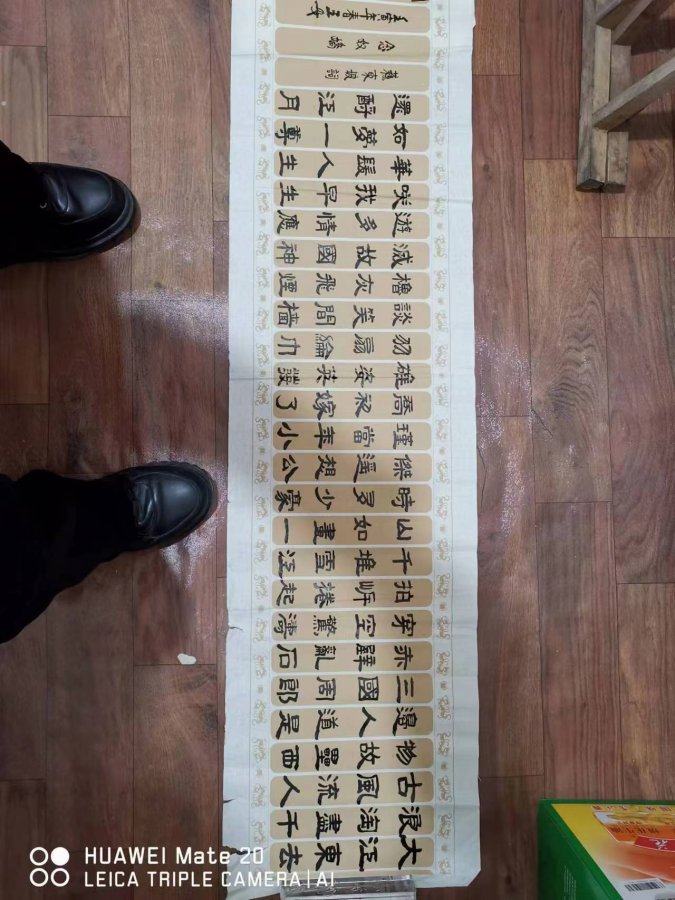 大江東去
浪淘盡千
古風流人
物故壘西
邊人道是
三國周郎
赤壁亂石
穿空驚濤
拍岸捲起
千堆雪江
山如畫一
時多少豪
傑遥想公
瑾當年小
喬初嫁了
雄姿英發
羽扇綸巾
談笑間檣
櫓灰飛煙
滅故國神
遊多情應
咲我早生
華髮人生
如夢一尊
還酹江月
蘇東坡詞
念奴嬌
壬寅年春
HUAWEI Mate 20
LEICA TRIPLE CAMERA | AI